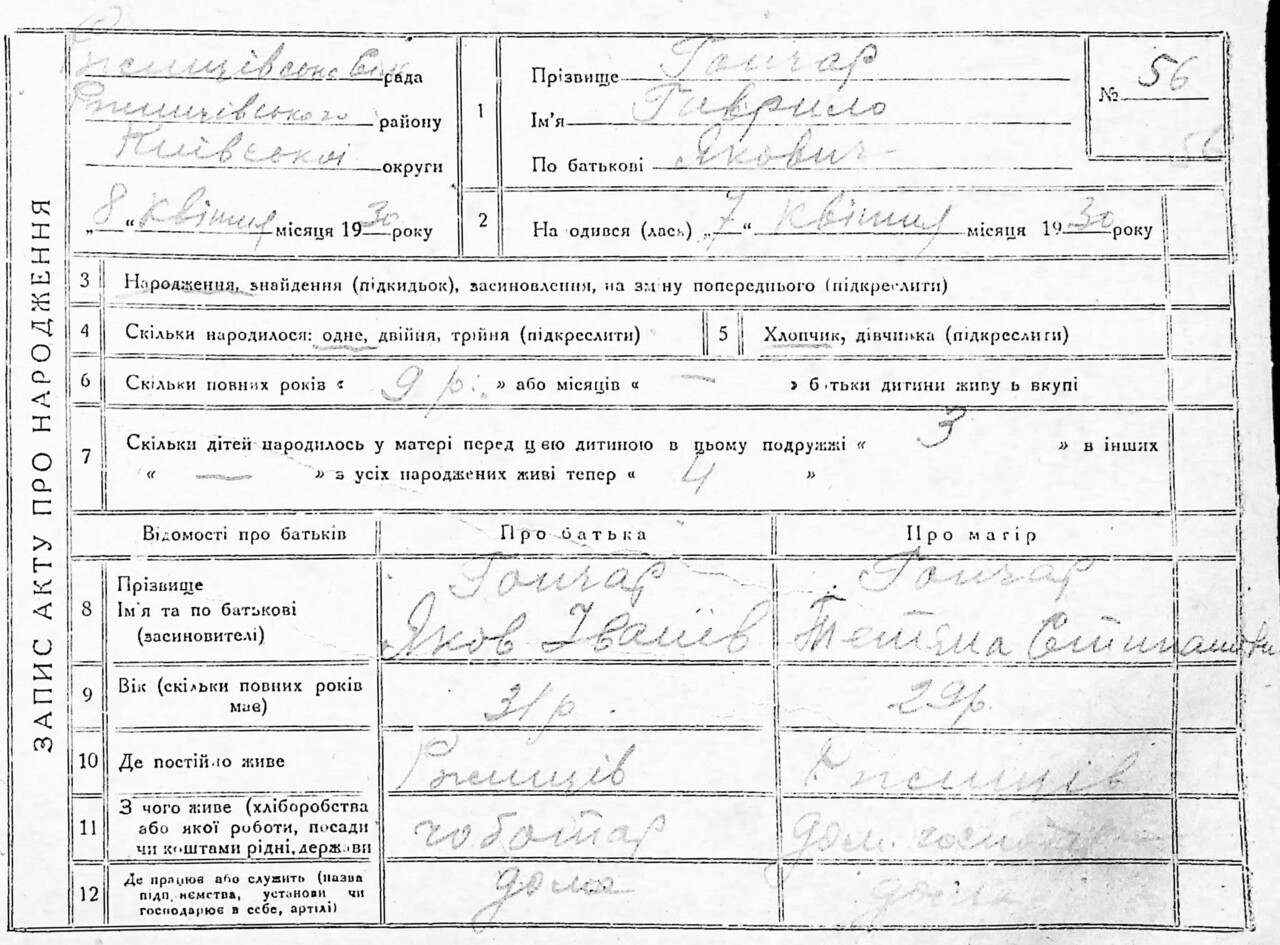 ЗАПИС АКТУ ПРО НАРОДЖЕННЯ
Ржищівське рада
Ржищівського району
Київської округи
„8“ квітня місяця 1930 року
1
Прізвище Гончар
Ім'я Гаврило
По батькові Якович
№ 56
56
2 На одився (лась) „7“ квітня місяця 1930 року
3 Народження, знайдення (підкидьок), засиновлення, на зміну попереднього (підкреслити)
4 Скільки народилося: одне, двійня, трійня (підкреслити) 5 Хлопчик, дівчинка (підкреслити)
6 Скільки повних років « 9 р. » або місяців « — » батьки дитини живуть вкупі
7 Скільки дітей народилось у матері перед цією дитиною в цьому подружжі « 3 » в інших
« — » з усіх народжених живі тепер « 4 »
Відомості про батьків Про батька Про матір
8 Прізвище Гончар Гончар
Ім'я та по батькові (засиновителі) Яков Іванів Тетяна
9 Вік (скільки повних років має) 31 р. 29 р.
10 Де постійно живе Ржищів Ржищів
11 З чого живе (хліборобства або якої роботи, посади чи коштами рідні, держави чоботар дом.
12 Де працює або служить (назва підп, немства, установи чи господарює в себе, артілі) дома дома